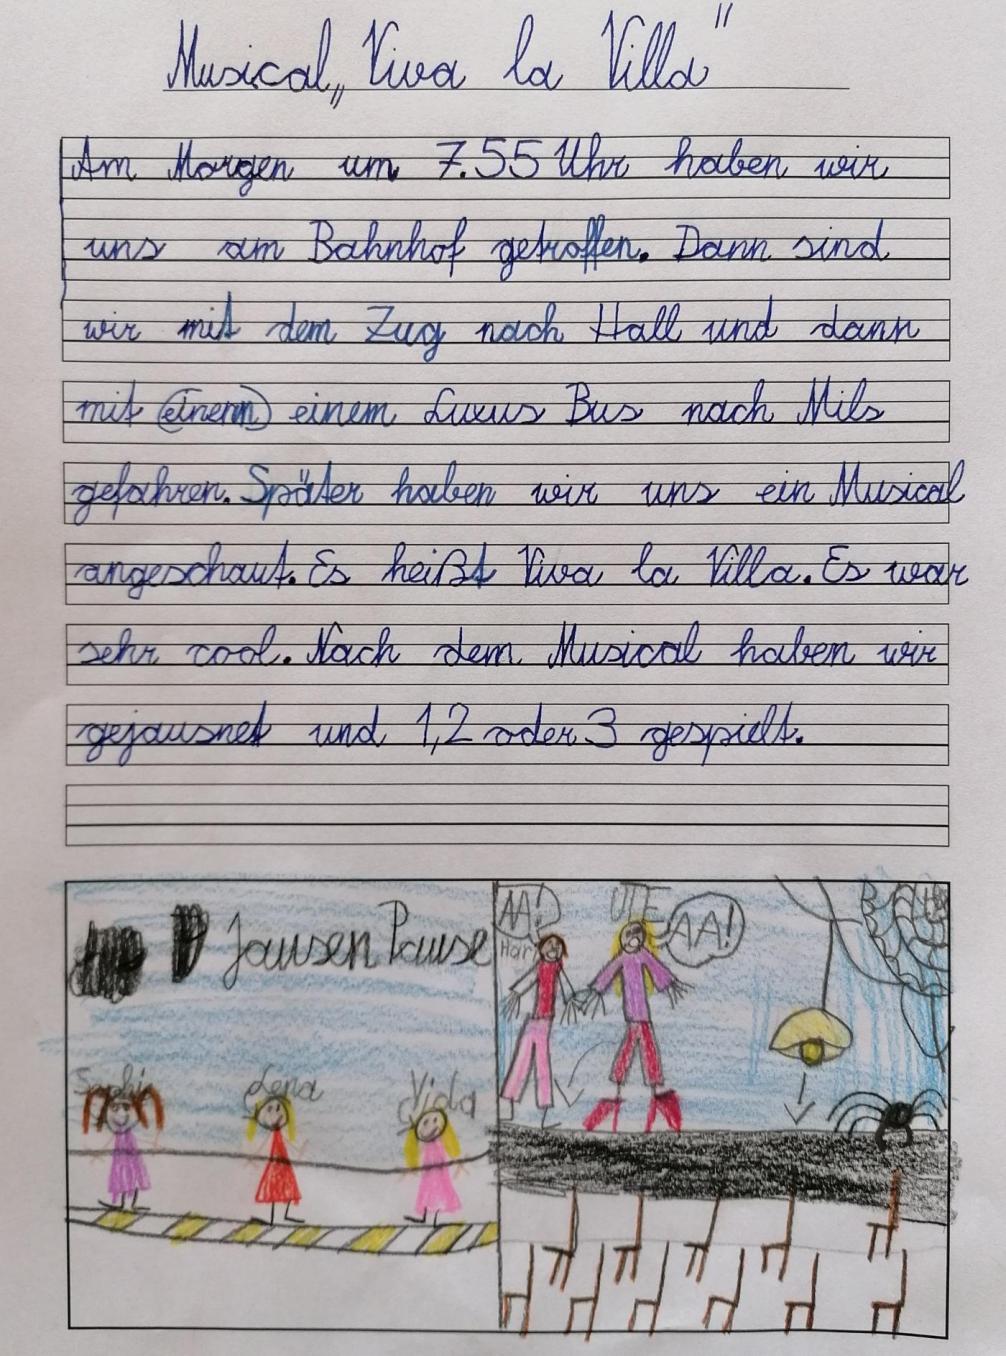 Musical „Viva la Villa"
Am Morgen um 7.55 Uhr haben wir
uns am Bahnhof getroffen. Dann sind
wir mit dem Zug nach Hall und dann
mit einem einem Luxus Bus nach Mils
gefahren. Später haben wir uns ein Musical
angeschaut. Es heißt Viva la Villa. Es war
sehr cool. Nach dem Musical haben wir
gejausnet und 1,2 oder 3 gespielt.
Jausen Pause
Lena
Vida
AA!
UTE
AA!